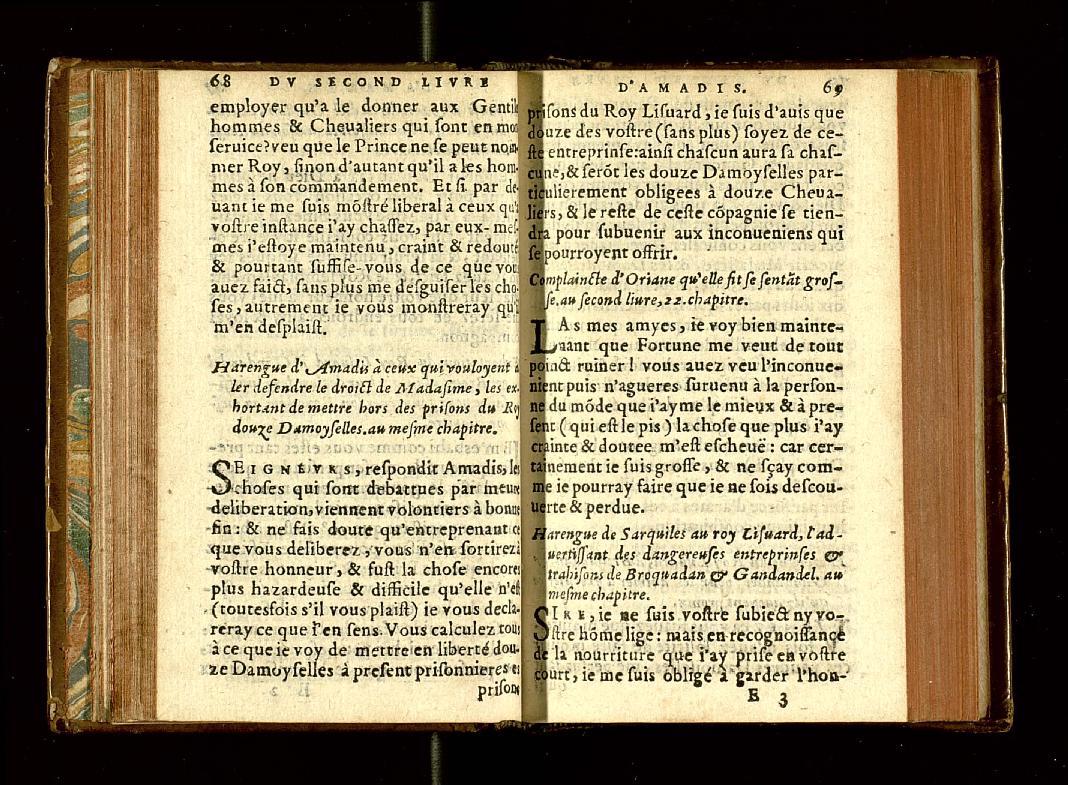 68 DV SECOND LIVRE
employer qu'a le donner aux Gentil
hommes & Cheualiers qui ſont en mon
ſeruice? veu que le Prince ne ſe peut nom
mer Roy, ſinon d'autant qu'il a les hom-
mes à ſon cõmandement. Et ſi par de-
uant ie me ſuis mõſtré liberal à ceux qu'à
voſtre inſtance i'ay chaſſez, par eux-meſ-
mes i'eſtoye maintenu, craint & redouté
& pourtant ſuffiſe-vous de ce que vous
auez faict, ſans plus me deſguiſer les cho-
ſes, autrement ie vous monſtreray qu'il
m'en deſplaiſt.
Harengue d'Amadis à ceux qui vouloyent
ler defendre le droict de Madaſime, les ex-
hortant de mettre hors des priſons du Roy
douze Damoyſelles. au meſme chapitre.
SEIGNEVRS, reſpondit Amadis, les
choſes qui ſont debattues par meure
deliberation, viennent volontiers à bonne
fin: & ne fais doute qu'entreprenant ce
que vous deliberez, vous n'en ſortirez à
voſtre honneur, & fuſt la choſe encores
plus hazardeuſe & difficile qu'elle n'eſt
(toutesfois s'il vous plaiſt) ie vous decla-
reray ce que i'en ſens. Vous calculez tous
à ce que ie voy de mettre en liberté dou-
ze Damoyſelles à preſent priſonnieres es
priſons
D'AMADIS. 69
priſons du Roy Liſuard, ie ſuis d'auis que
douze des voſtre (ſans plus) ſoyez de ce-
ſte entreprinſe: ainſi chaſcun aura ſa chaſ-
cune, & ſerõt les douze Damoyſelles par-
ticulierement obligees à douze Cheua-
liers, & le reſte de ceſte cõpagnie ſe tien-
dra pour ſubuenir aux inconueniens qui
ſe pourroyent offrir.
Complaincte d'Oriane qu'elle fit ſe ſentãt groſ-
ſe. au ſecond liure, 22. chapitre.
LAs mes amyes, ie voy bien mainte-
nant que Fortune me veut de tout
poinct ruiner! vous auez veu l'inconue-
nient puis n'agueres ſuruenu à la perſon-
ne du mõde que i'ayme le mieux & à pre-
ſent (qui eſt le pis) la choſe que plus i'ay
crainte & doutee m'eſt eſcheuë: car cer-
tainement ie ſuis groſſe, & ne ſçay com-
me ie pourray faire que ie ne ſois deſcou-
uerte & perdue.
Harengue de Sarquiles au roy Liſuard, l'ad-
uertiſſant des dangereuſes entreprinſes &
trahiſons de Broquadan & Gandandel. au
meſme chapitre.
SIRE, ie ne ſuis voſtre ſubiect ny vo-
ſtre hõme lige: mais en recognoiſſance
de la nourriture que i'ay priſe en voſtre
court, ie me ſuis obligé à garder l'hon-
E 3